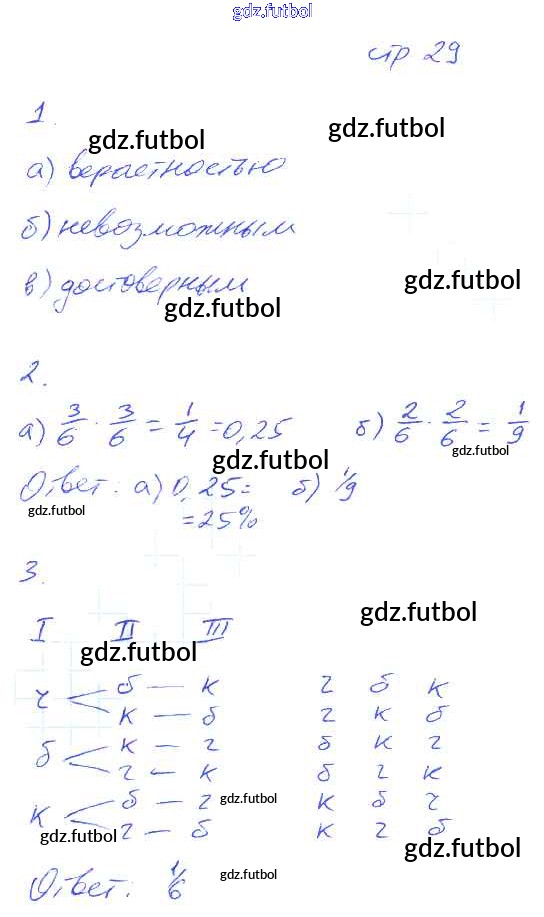 gdz.futbol
стр 29
1.
gdz.futbol gdz.futbol
а) вераетностью
б) невозможным
gdz.futbol
в) достоверным
gdz.futbol
2.
а) 3/6 · 3/6 = 1/4 = 0,25 б) 2/6 · 2/6 = 1/9
gdz.futbol gdz.futbol
Ответ: а) 0,25 = б) 1/9
gdz.futbol
= 25%
3.
gdz.futbol
I II III
gdz.futbol
ч < б — к г б к
к — б г к б
б < к — г б к г
г — к б г к
к < б — г gdz.futbol к б ч
г — б к г б
gdz.futbol gdz.futbol
Ответ: 1/6 gdz.futbol